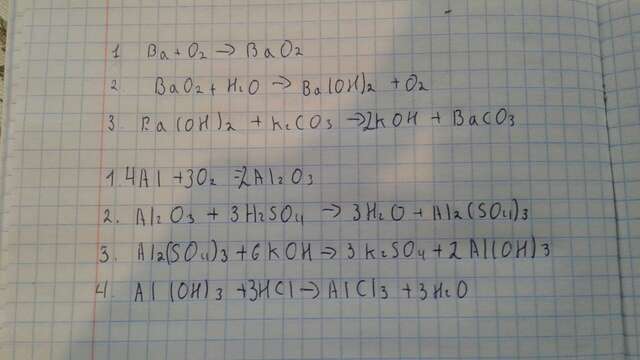 1 Ba + O2 → BaO2
2. BaO2 + H2O → Ba(OH)2 + O2
3. Ba(OH)2 + K2CO3 → 2KOH + BaCO3
1. 4Al + 3O2 = 2Al2O3
2. Al2O3 + 3H2SO4 → 3H2O + Al2(SO4)3
3. Al2(SO4)3 + 6KOH → 3K2SO4 + 2Al(OH)3
4. Al(OH)3 + 3HCl → AlCl3 + 3H2O